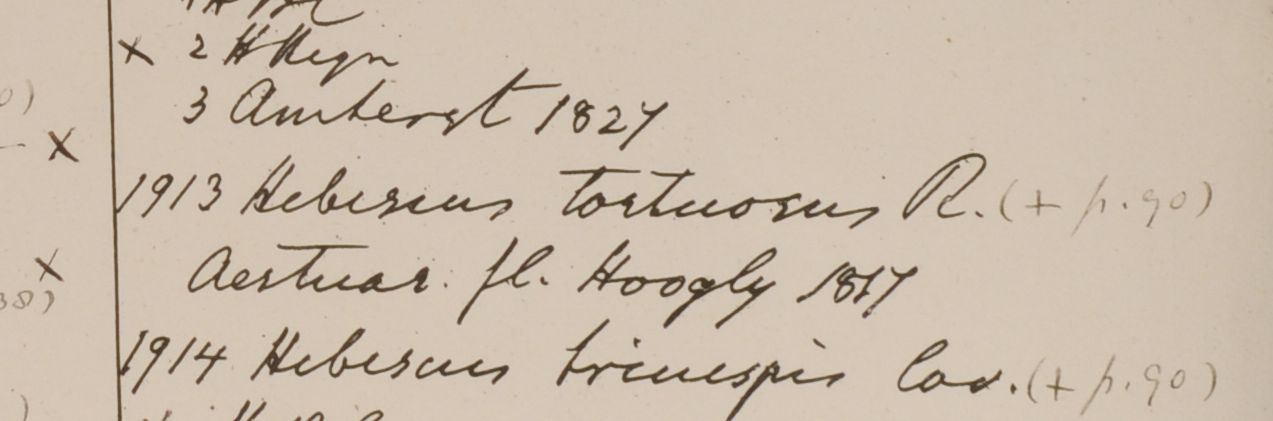 x 2 H Heyn
3 Amherst 1827
x
1913 Hebiscus tortuosus R. (+ p. 90)
x Aestuar. fl. Hoogly 1817
38)
1914 Hebiscus trinespis Cav. (+ p. 90)